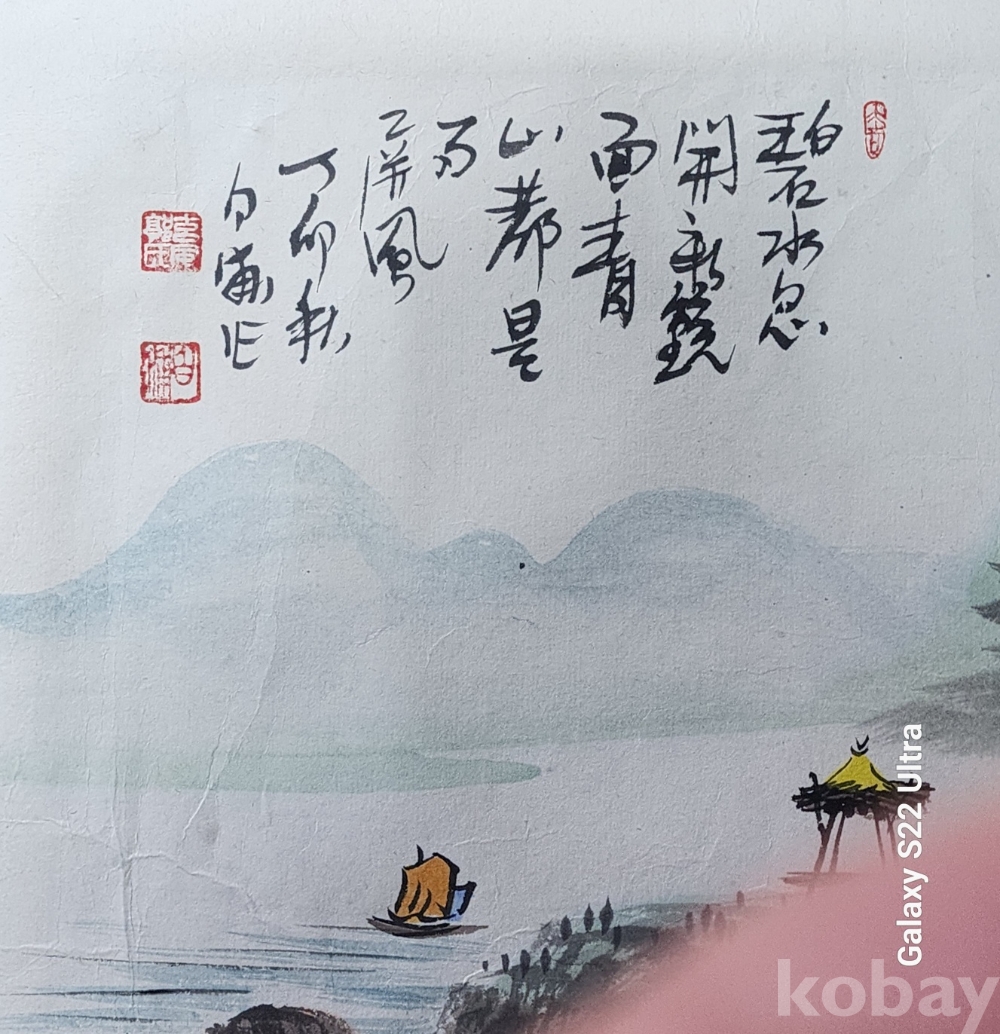 碧水忽
開新鏡
面青
山都是
屏風
丁卯秋
作
Galaxy S22 Ultra
kobay